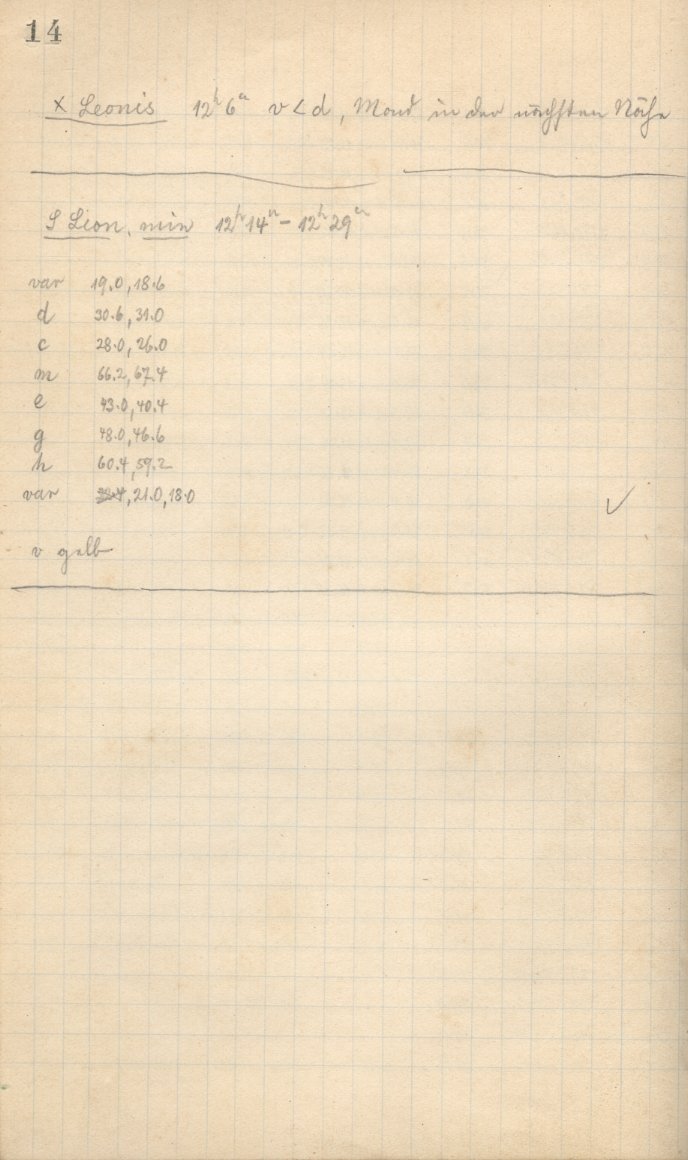 14
X Leonis 12ʰ6ᵐ v < d, Mond in der nächsten Nähe
S Leon. min 12ʰ14ᵐ – 12ʰ29ᵐ
var 19.0, 18.6
d 30.6, 31.0
c 28.0, 26.0
m 66.2, 67.4
e 43.0, 40.4
g 48.0, 46.6
h 60.4, 59.2
var 21.0, 18.0
✓
v gelb